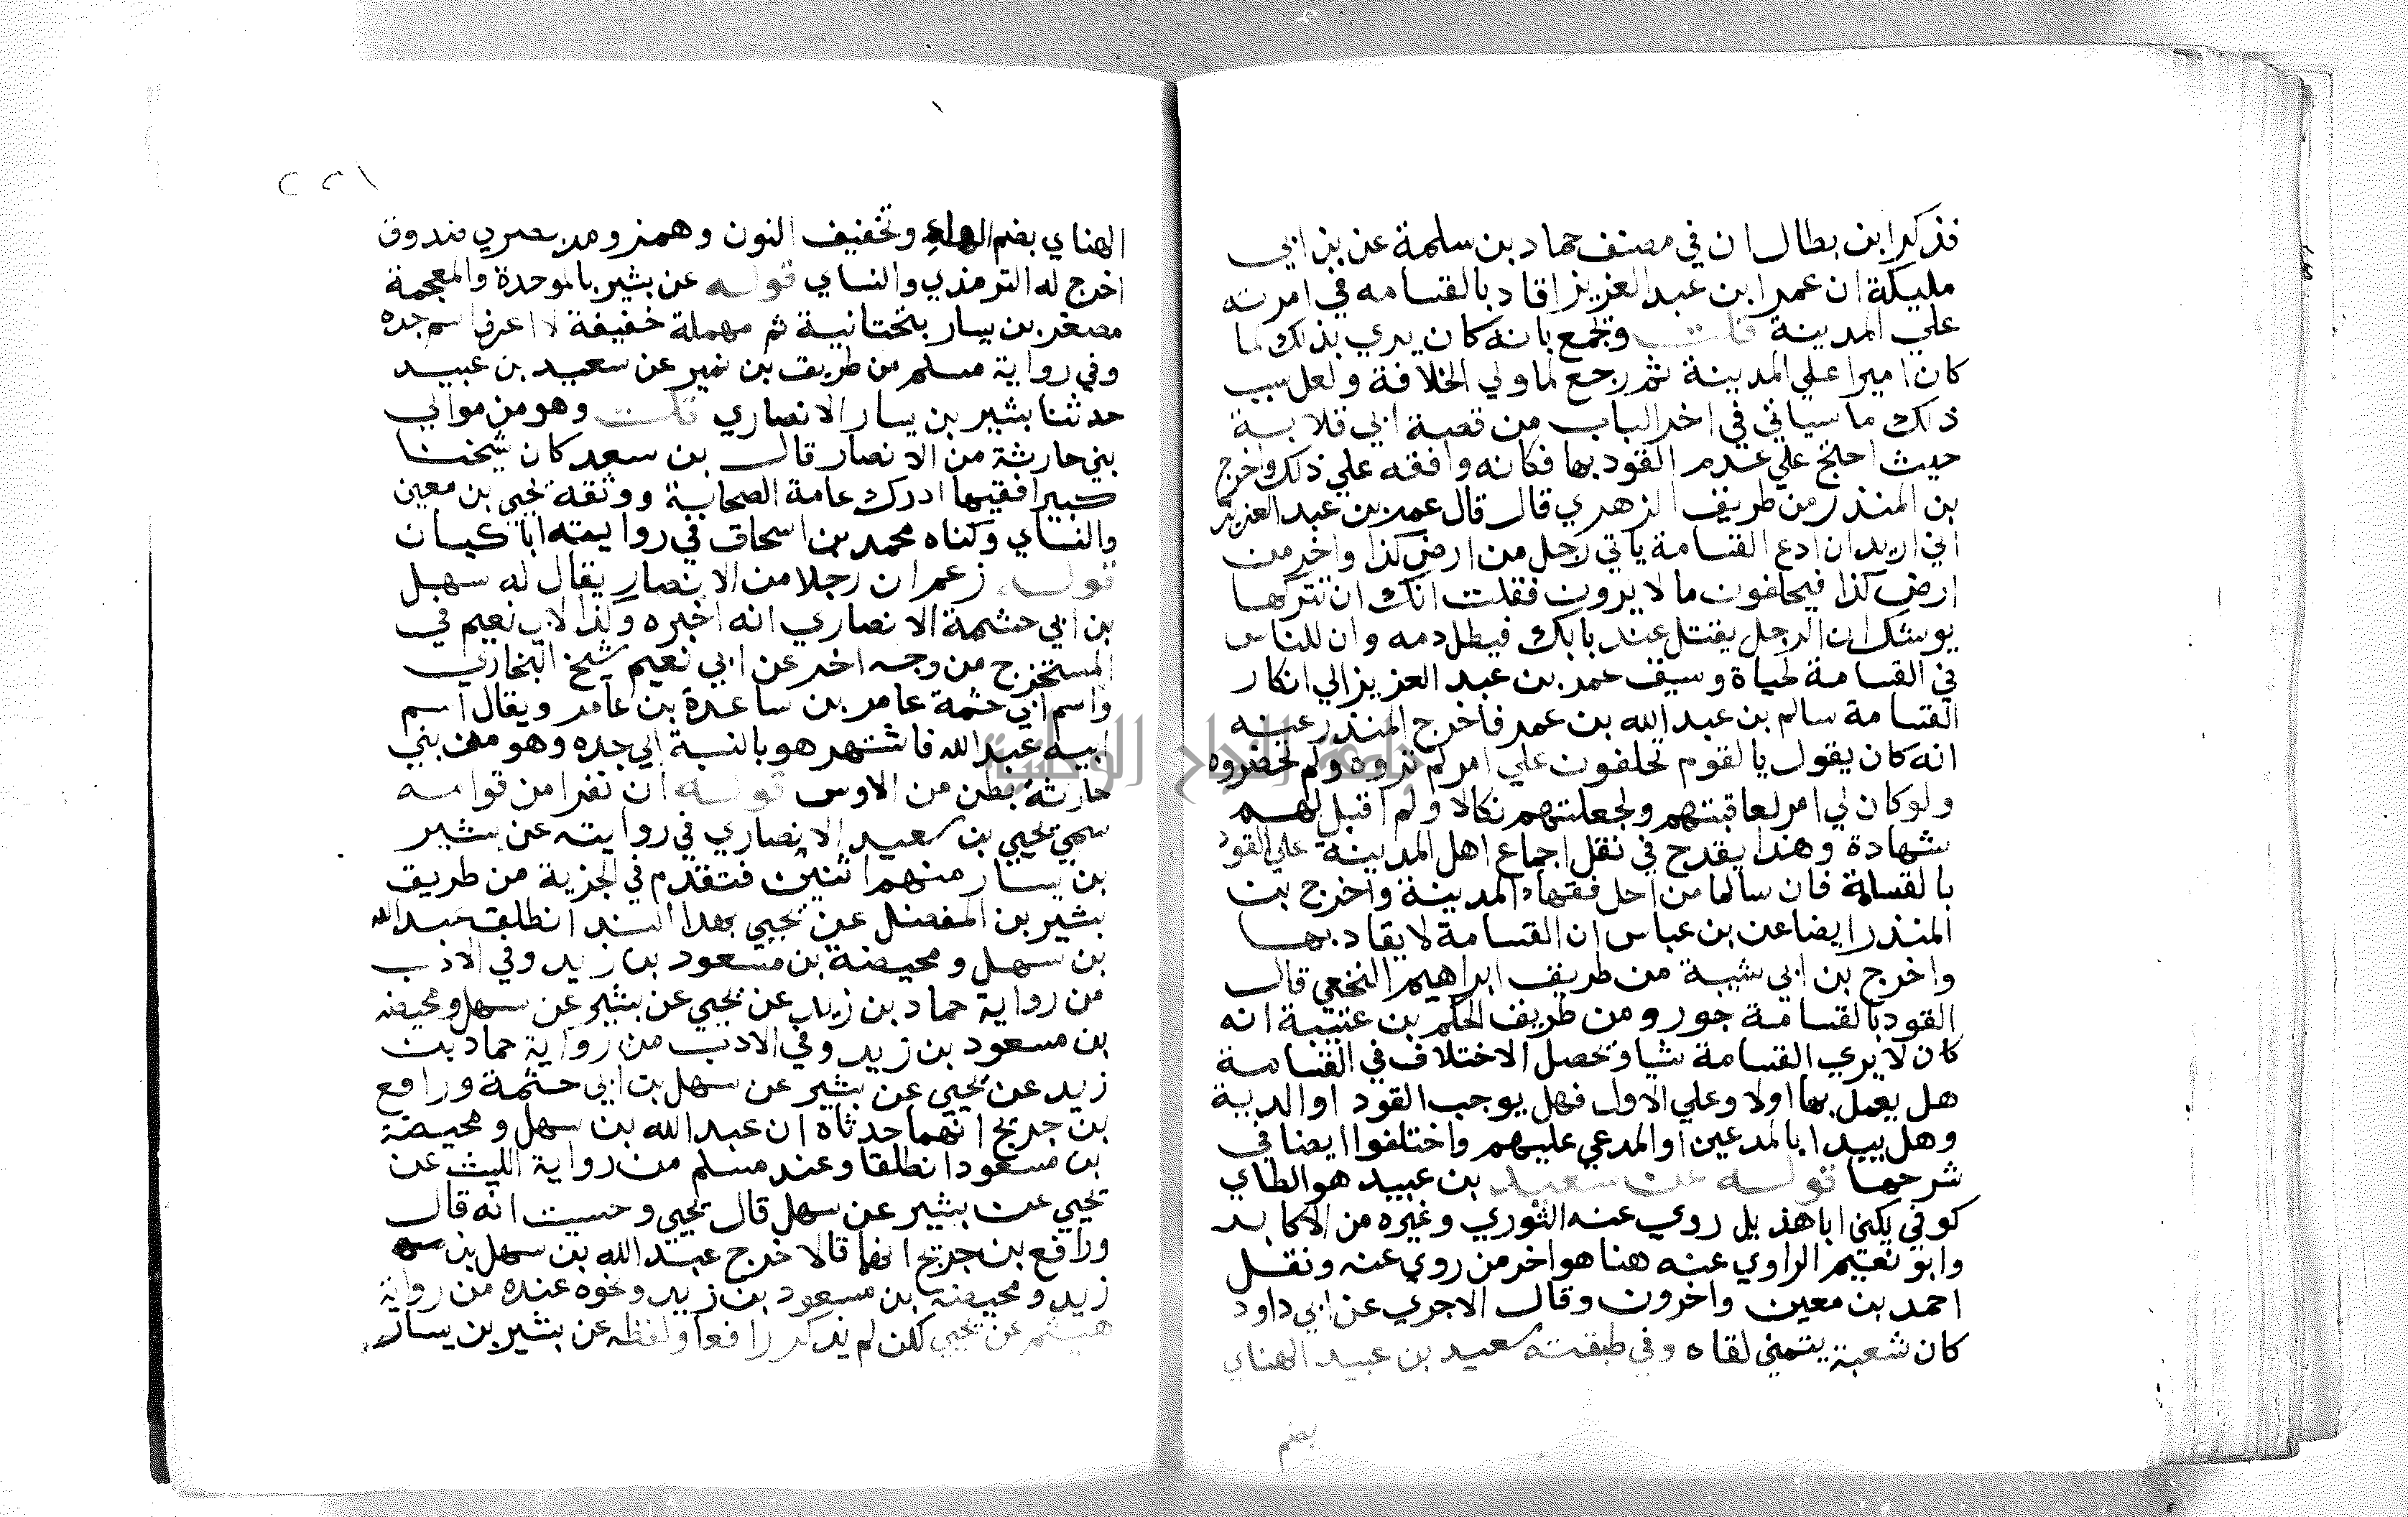 فذكر ابن بطال ان في مصنف حماد بن سلمة عن بن ابي
مليكة ان عمر ابن عبد العزيز اقاد بالقسامه في امرته
علي المدينة قلت ويجمع بانه كان يري بذلك لما
كان اميرا علي المدينة ثم رجع لما ولي الخلافة ولعل سبب
ذلك ما سياتي في اخر الباب من قصة ابي قلابة
حيث احتج علي عدم القود بها فكانه وافقه علي ذلك واخرج
بن المنذر من طريق الزهري قال قال عمر بن عبد العزيز
اني اريد ان ادع القسامة ياتي رجل من ارض كذا واخر من
ارض كذا فيحلفون ما لا يرون فقلت انك ان تتركها
يوشك ان الرجل يقتل عند بابك فيطل دمه وان للناس
في القسامة لحياة وسبق عمر بن عبد العزيز الي انكار
القسامة سالم بن عبد الله بن عمر فاخرج المنذر عنه
انه كان يقول يا لقوم تحلفون علي امر لم تروه ولم تحضروه
ولو كان لي امر لعاقبتهم ولجعلتهم نكالا ولم اقبل لهم
شهادة وهذا يقدح في نقل اجماع اهل المدينة علي القود
بالقسامة فان سالما من اجل فقهاء المدينة واخرج بن
المنذر ايضا عن بن عباس ان القسامة لا يقاد بها
واخرج بن ابي شيبة من طريق ابراهيم النخعي قال
القود بالقسامة جور ومن طريق الحكم بن عتيبة انه
كان لا يري القسامة شيا ومحصل الاختلاف في القسامة
هل يعمل بها اولا وعلي الاول فهل يوجب القود او الدية
وهل يبدا بالمدعين او المدعي عليهم واختلفوا ايضا في
شرحها قوله عن سعيد بن عبيد هو الطاي
كوفي يكني ابا هذيل روي عنه الثوري وغيره من الاكابر
وابو نعيم الراوي عنه هنا هو اخر من روي عنه ونقل
احمد بن معين واخرون وقال الاجري عن ابي داود
كان شعبة يتمني لقاه وفي طبقته سعيد بن عبيد الهناي
بضم
٢٢١
الهناي بضم الهاء وتخفيف النون وهمز ومد بصري صدوق
اخرج له الترمذي والنساي قوله عن بشير بالموحدة والمعجمة
مصغر بن يسار بتحتانية ثم مهملة خفيفة لا اعرف اسم جده
وفي رواية مسلم من طريق بن نمير عن سعيد بن عبيد
حدثنا بشير بن يسار الانصاري قلت وهو من موالي
بني حارثة من الانصار قال بن سعد كان شيخنا
كبيرا فقيها ادرك عامة الصحابة ووثقه يحيي بن معين
والنساي وكناه محمد بن اسحاق في روايته ابا كيسان
قوله زعم ان رجلا من الانصار يقال له سهل
بن ابي حثمة الانصاري انه اخبره ولذا لابي نعيم في
المستخرج من وجه اخر عن ابي نعيم شيخ البخاري
واسم ابي حثمة عامر بن ساعدة بن عامر ويقال اسم
ابيه عبد الله فاشتهر هو بالنسبة الي جده وهو من بني
حارثة بطن من الاوس قوله ان نفرا من قوامه
سمي يحيي بن سعيد الانصاري في روايته عن بشير
بن يسار منهم اثنين فتقدم في الجزية من طريق
بشير بن المفضل عن يحيي بهذا السند انطلق عبد الله
بن سهل ومحيصة بن مسعود بن زيد وفي الادب
من رواية حماد بن زيد عن يحيي عن بشير عن سهل ومحيصه
بن مسعود بن زيد وفي الادب من رواية حماد بن
زيد عن يحيي عن بشير عن سهل بن ابي حثمة ورافع
بن جريج انهما حدثاه ان عبد الله بن سهل ومحيصة
بن مسعود انطلقا وعند مسلم من رواية الليث عن
يحيي عن بشير عن سهل قال يحيي وحسبت انه قال
ورافع بن جريج انهما قالا خرج عبد الله بن سهل بن
زيد ومحيصة بن مسعود بن زيد ونحوه عنده من رواية
هشيم عن يحيي لكن لم يذكر رافعا ولفظه عن بشير بن يسار
جامعة النجاح الوطنية